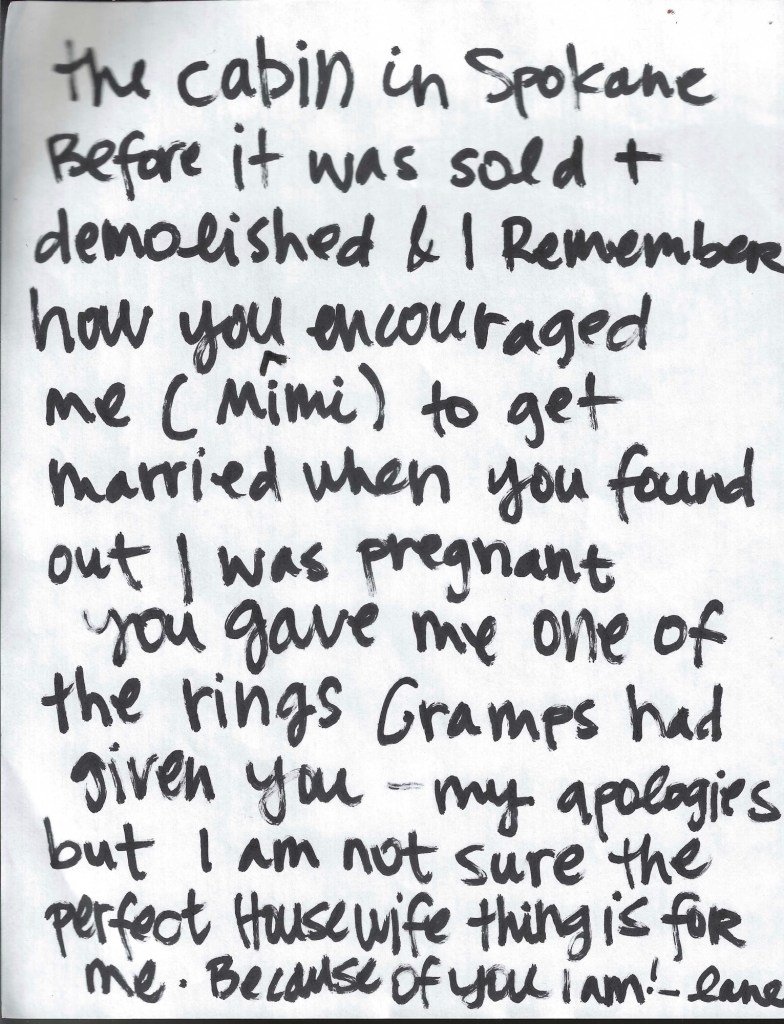 the cabin in Spokane
Before it was sold +
demolished & I Remember
how you encouraged
me (Mîmi) to get
married when you found
out I was pregnant
you gave me one of
the rings Gramps had
given you - my apologies
but I am not sure the
perfect Housewife thing is for
me. Because of you I am! - lane